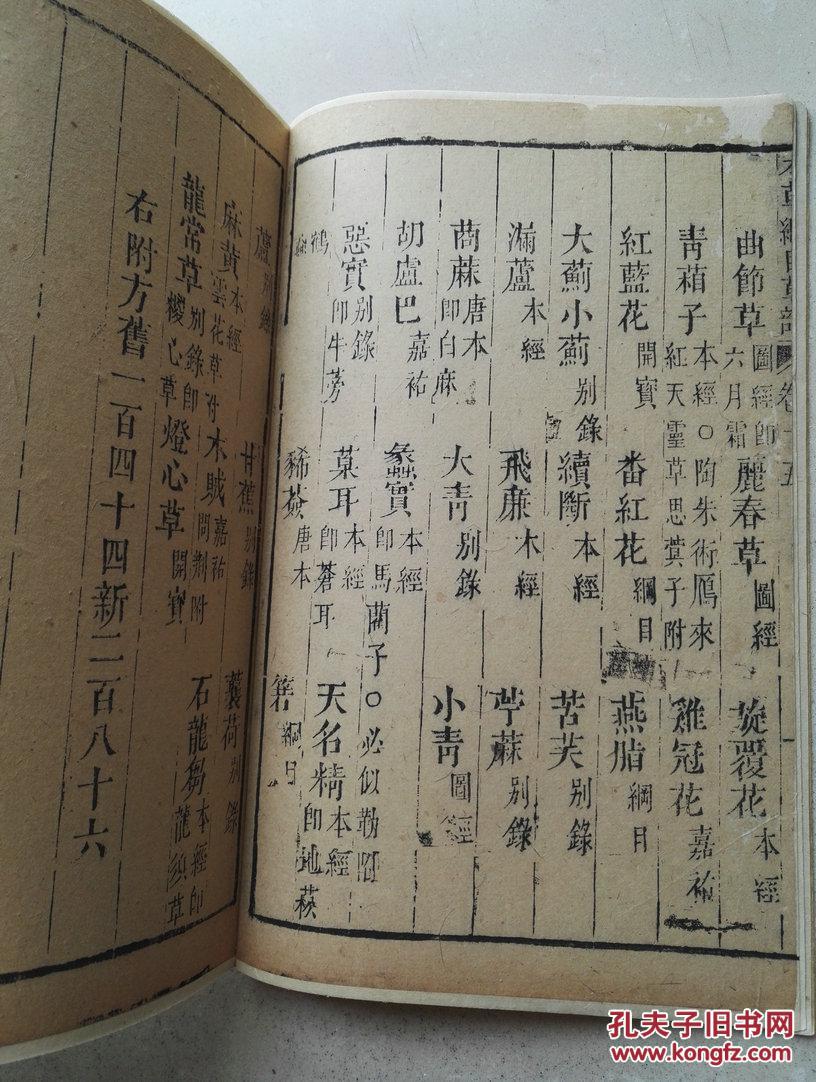 本草綱目草部 卷十五
曲節草 圖經即六月霜 麗春草 圖經 旋覆花 本經
靑葙子 本經○陶朱術鴈來紅天靈草思蓂子附 雞冠花 嘉祐
紅藍花 開寶 番紅花 綱目 燕脂 綱目
大薊小薊 别錄 續斷 本經 苦芺 别錄
漏蘆 本經 飛廉 本經 苧蔴 别錄
䔛蔴 唐本即白麻 大靑 别錄 小靑 圖經
胡盧巴 嘉祐 蠡實 本經即馬藺子○必似勒附
惡實 别錄即牛蒡 葈耳 本經即蒼耳 天名精 本經即地菘
豨薟 唐本 箬 綱目
蘆 别錄 甘蕉 别錄 蘘荷 别錄
麻黃 本經雲花草附 木賊 嘉祐問荆附 石龍芻 本經即龍須草
龍常草 别錄即糉心草 燈心草 開寶
右附方舊一百四十四新二百八十六
孔夫子旧书网
www.kongfz.com